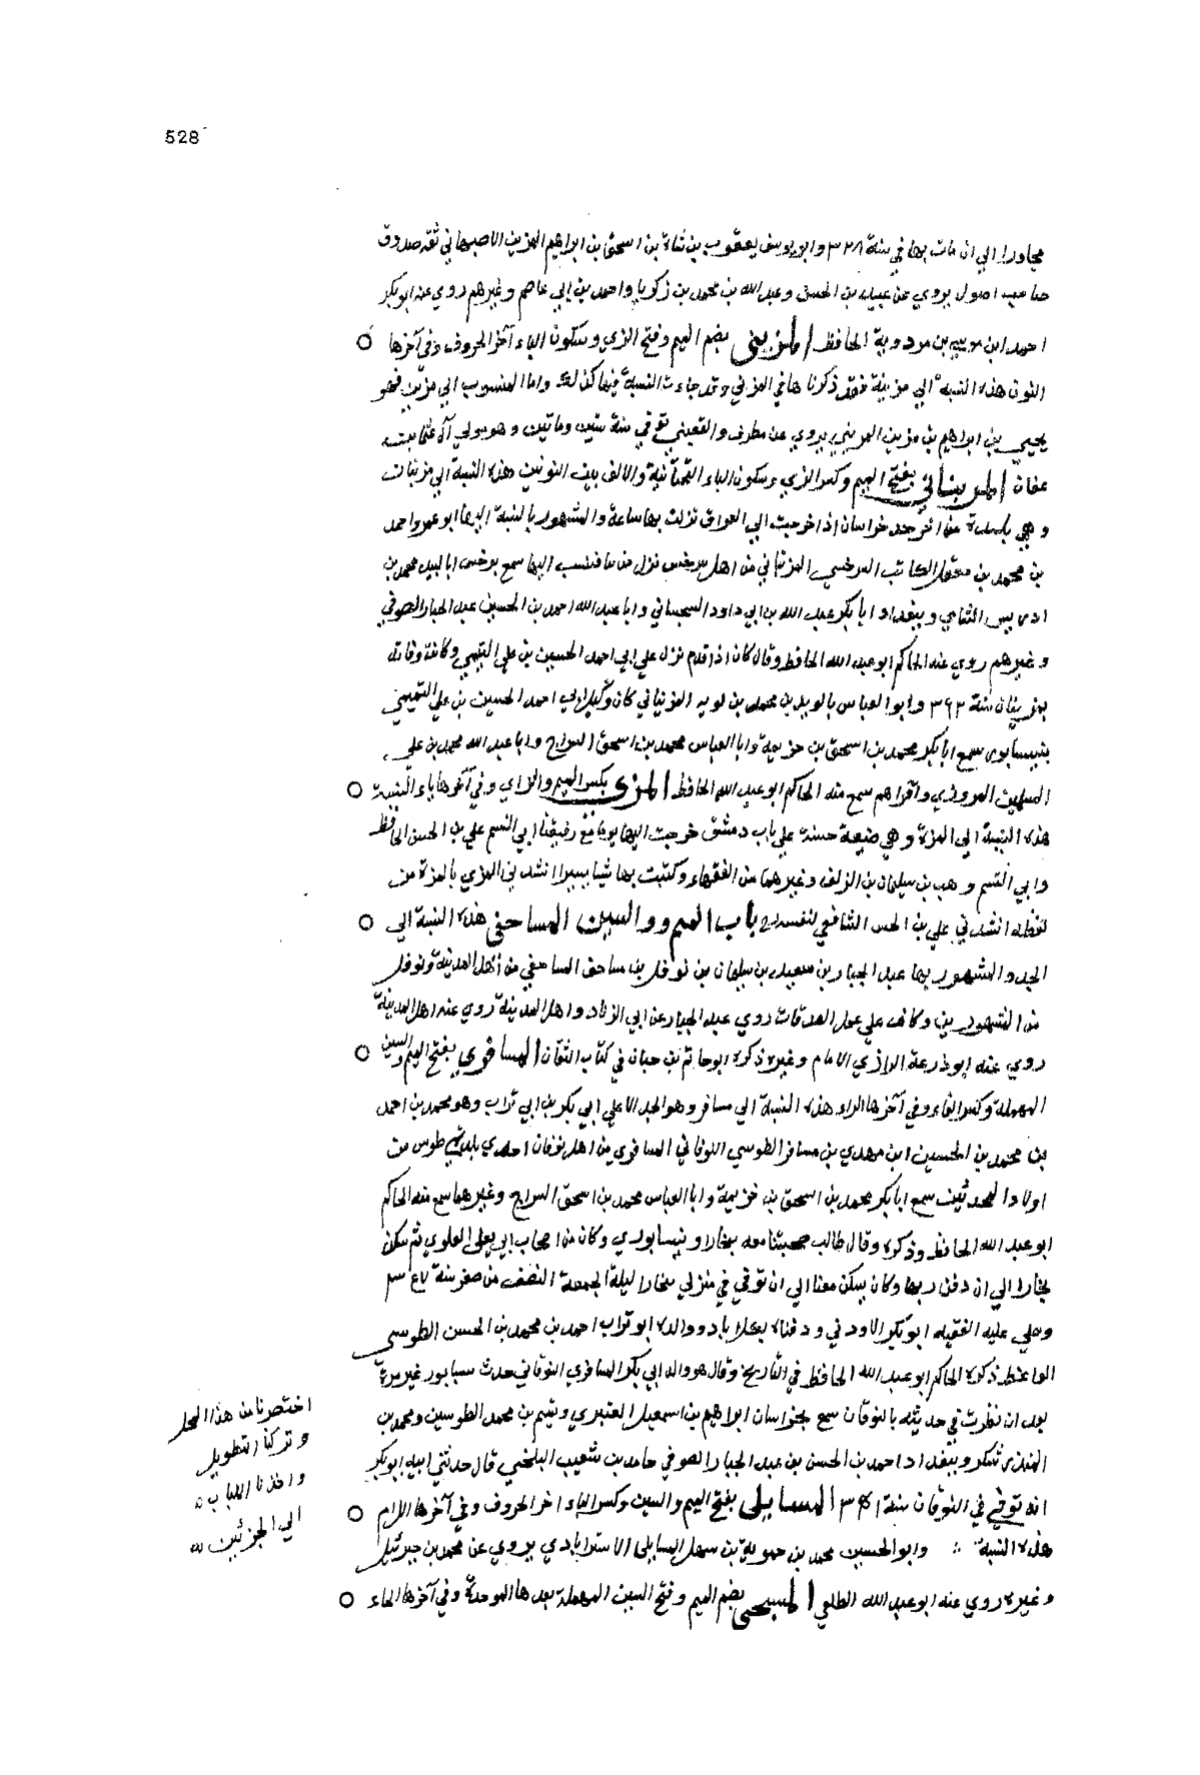 528
مجاورا الي ان مات بها في سنة ٣٢٨ وابو يوسف يعقوب بن اسحق بن ابراهيم المزين الاصبهاني ثقه صدوق
صاحب اصول يروي عن عبيد بن الحسن وعبد الله بن محمد بن زكريا واحمد بن ابي عاصم وغيرهم روي عنه ابو بكر
احمد ابن موسي بن مردوية الحافظ المزيني بضم الميم وفتح الزي وسكون الياء آخر الحروف وفي آخرها
النون هذه النسبة الي مزينة فقد ذكرنا ها في المزني وقد جاءت النسبة فيها كذلك واما المنسوب الي مزين فهو
يحيي بن ابراهيم بن مزين المزيني يروي عن مطرف والقعنبي توفي سنة ستين وماتين وهو مولي آل
عفان المزيناني بفتح الميم وكسر الزي وسكون الياء التحتانية والالف بين النونين هذه النسبة الي مزينات
وهي بليدة من اخر حد خراسان اذا خرجت الي العراق نزلت بها ساعة والمشهور بالنسبة اليها ابو عمرو احمد
بن محمد بن معقل الكاتب السرخسي المزيناني من اهل سرخس نزل مزينان فنسب اليها سمع بسرخس ابا لبيد محمد بن
ادريس الشامي وببغداد ابا بكر عبد الله بن ابي داود السجستاني وابا عبد الله احمد بن الحسين عبد الجبار الصوفي
وغيرهم روي عنه الحاكم ابو عبد الله الحافظ وقال كان اذا قدم نزل علي ابي احمد الحسين بن علي التميمي وكانت وفاته
بمزينان سنة ٣٩٢ وابو العباس بن محمد بن المزيناني كان وكيل ابي احمد الحسين بن علي التميمي
بنيسابور سمع ابا بكر محمد بن اسحق بن خزيمة وابا العباس محمد بن اسحق السراج وابا عبد الله محمد بن علي
المروزي واقراهم سمع منه الحاكم ابو عبد الله الحافظ المزي بكسر الميم والزاي وفي آخرها ياء النسبة
هذه النسبة الي المزة وهي ضيعة حسنة علي باب دمشق خرجت اليها يوما مع رفيقنا ابي القسم علي بن الحسن الحافظ
وابي القسم وهب بن سليمان بن الزلف وغيرهما من الفقهاء وكتبت بها شيا يسيرا انشدني المزي بالمزة من
لفظه انشدني علي بن الحسن الشافعي لنفسه باب الميم والسين المساحقي هذه النسبة الي
الجد والمشهور بها عبد الجبار بن سعيد بن سليمان بن نوفل بن مساحق المساحقي من اهل المدينة ونوفل
من المشهورين وكانت علي عمل الصدقات روي عبد الجبار عن ابي الزناد واهل المدينة روي عنه اهل المدينة
روي عنه ابو زرعة الرازي الامام وغيره ذكره ابو حاتم بن حبان في كتاب الثقات المسافري بفتح الميم والسين
المهملة وكسر الفاء وفي آخرها الراء هذه النسبة الي مسافر وهو الجد الاعلي ابي بكر بن ابي تراب وهو محمد بن احمد
بن محمد بن الحسين ابن مهدي بن مسافر الطوسي النوقاني المسافري من اهل نوقان احدي بلدتي طوس من
اولاد المحدثين سمع ابا بكر محمد بن اسحق بن خزيمة وابا العباس محمد بن اسحق السراج وغيرهما سمع منه الحاكم
ابو عبد الله الحافظ وذكره وقال طالت صحبتنا معه ببخارا ونيسابور وكان من اصحاب ابي يعلي العلوي ثم سكن
بخارا الي ان دفن بها وكان يسكن معنا الي ان توفي في منزلي ببخارا ليلة الجمعة النصف من صفر سنة
وصلي عليه الفقيه ابو بكر الاودني ودفناه بكلاباد ووالده ابو تراب احمد بن محمد بن الحسن الطوسي
الواعظ ذكره الحاكم ابو عبد الله الحافظ في التاريخ وقال هو والد ابي بكر المسافري النوقاني حدث غير مرة
بعد ان نظرت في حديثه بالنوقان سمع بخراسان ابراهيم بن اسمعيل العنبري وتميم بن محمد الطوسين ومحمد بن
المنذر شكر وببغداد احمد بن الحسن بن عبد الجبار الصوفي حامد بن شعيب البلخي قال حدثني ابنه ابو بكر
انه توفي في النوقان سنة المسايلي بفتح الميم والسين وكسر الياء اخر الحروف وفي آخرها اللام
هذه النسبة وابو الحسين محمد بن حموية بن سهل المسايلي الاستراباذي يروي عن محمد بن جبرئيل
وغيره روي عنه ابو عبد الله الطلقي المسبحي بضم الميم وفتح السين المهملة بعدها الموحدة وفي آخرها الحاء
اختصرنا من هذا المحل
وتركنا التطويل
واخذنا اللباب
الي الجزئين